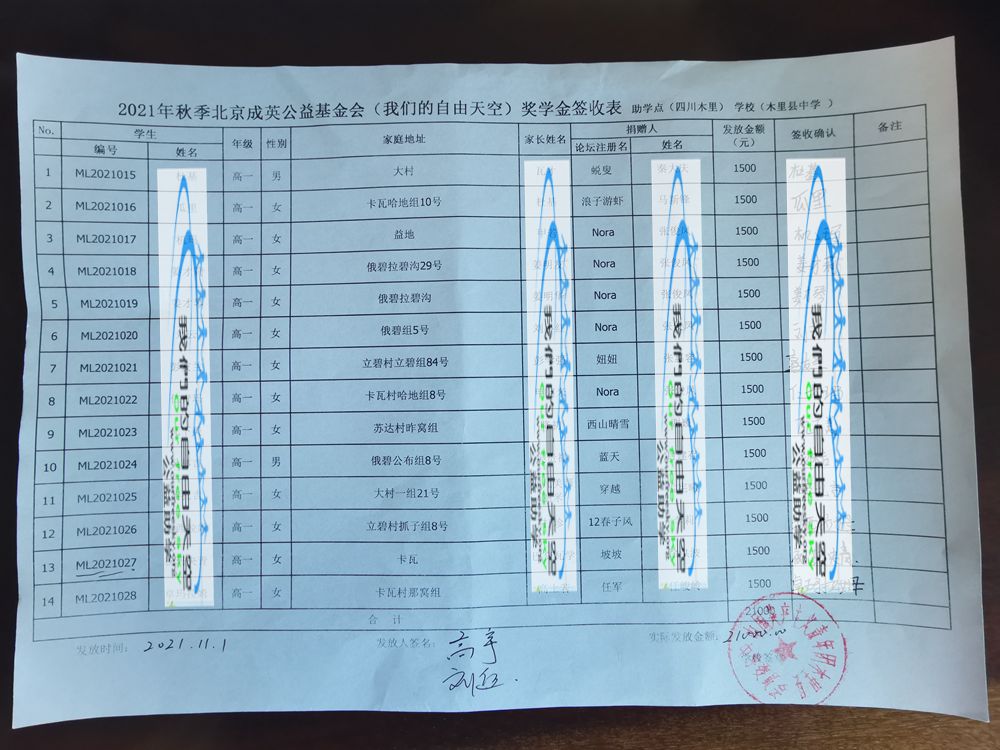 2021年秋季北京成英公益基金会（我们的自由天空）奖学金签收表 助学点（四川木里） 学校（木里县中学 ）
No. 学生 年级 性别 家庭地址 家长姓名 捐赠人 发放金额（元） 签收确认 备注
编号 姓名 论坛注册名 姓名
1 ML2021015 高一 男 大村 蜕叟 1500
2 ML2021016 高一 女 卡瓦哈地组10号 浪子游虾 1500
3 ML2021017 高一 女 益地 Nora 1500
4 ML2021018 高一 女 俄碧拉碧沟29号 Nora 1500
5 ML2021019 高一 女 俄碧拉碧沟 Nora 1500
6 ML2021020 高一 女 俄碧组5号 Nora 1500
7 ML2021021 高一 女 立碧村立碧组84号 妞妞 1500
8 ML2021022 高一 女 卡瓦村哈地组8号 Nora 1500
9 ML2021023 高一 女 苏达村昨窝组 西山晴雪 1500
10 ML2021024 高一 男 俄碧公布组8号 蓝天 1500
11 ML2021025 高一 女 大村一组21号 穿越 1500
12 ML2021026 高一 女 立碧村抓子组8号 12春子风 1500
13 ML2021027 高一 女 卡瓦 坡坡 1500
14 ML2021028 高一 女 卡瓦村那窝组 任军 1500
合 计 21000
发放时间： 2021.11.1 发放人签名： 实际发放金额： 21000.00
我们的自由天空
Our free sky
公益助学
我们的自由天空
Our free sky
公益助学
我们的自由天空
Our free sky
公益助学
我们的自由天空
Our free sky
公益助学